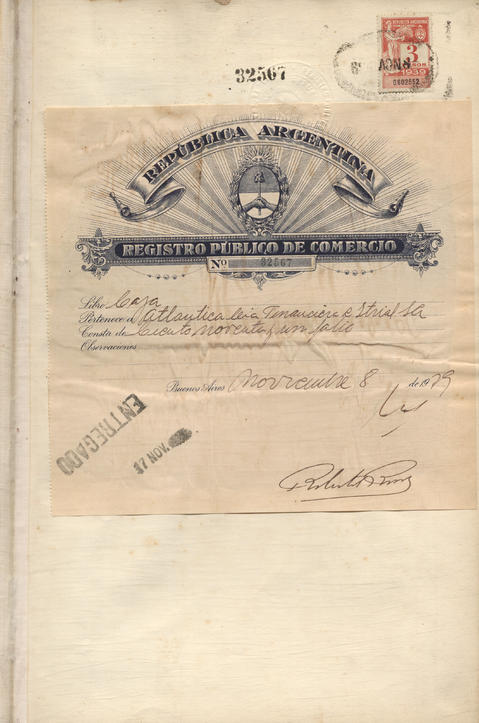 32567
REPUBLICA ARGENTINA
3
PESOS
1939
0602552
8 NOV
REPÚBLICA ARGENTINA
REGISTRO PÚBLICO DE COMERCIO
Nº 32567
Libro Caja
Pertenece a Atlantica Cia Financiera e Strial SA
Consta de Ciento noventa y un folio
Observaciones
Buenos Aires Noviembre 8 de 1939
ENTREGADO
NOV